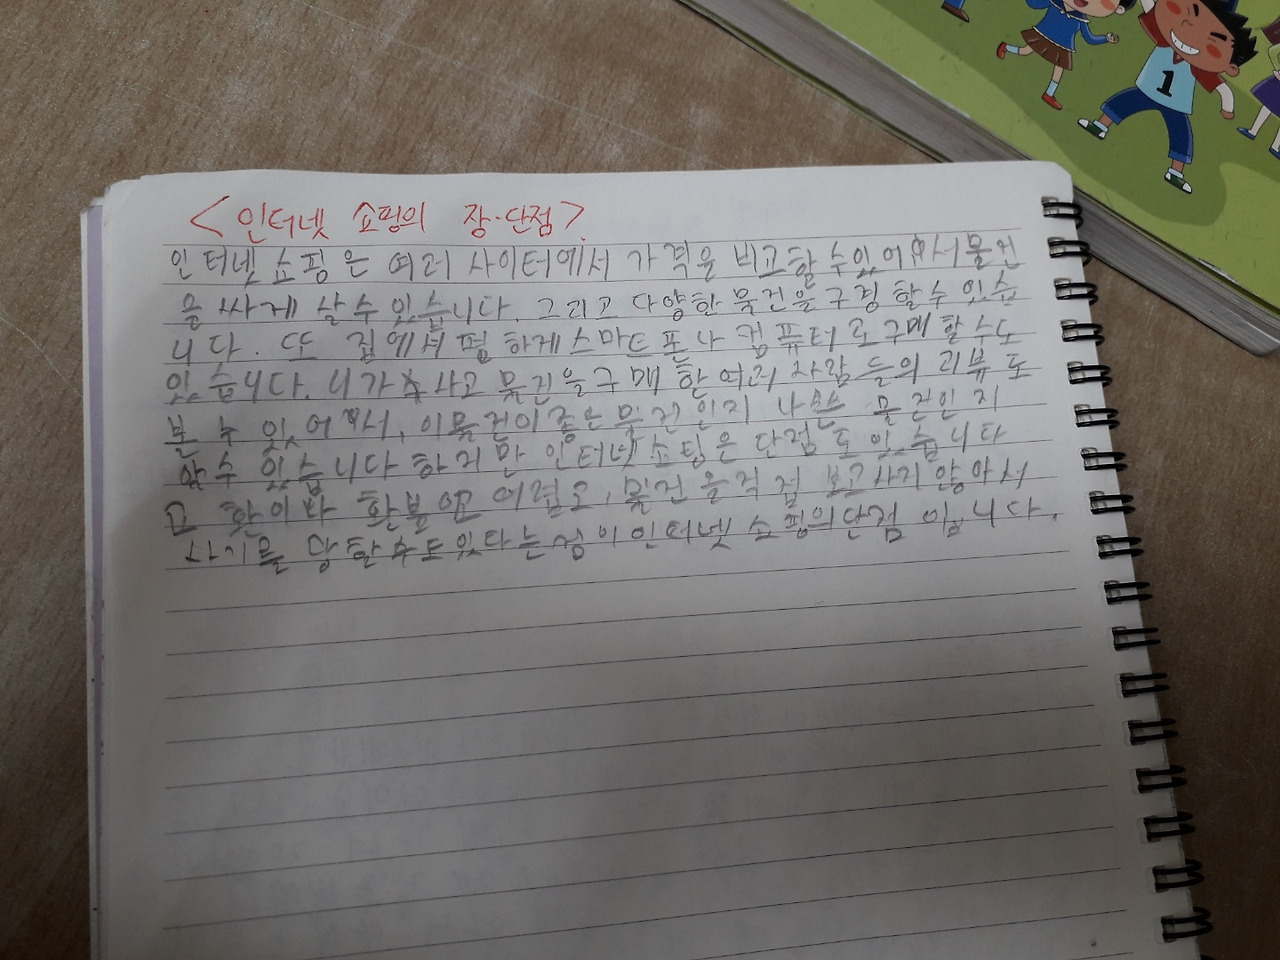 <인터넷 쇼핑의 장·단점>
인터넷 쇼핑은 여러 사이터에서 가격을 비교할 수 있어서 물건
을 싸게 살 수 있습니다. 그리고 다양한 물건을 구경 할 수 있습
니다. 또 집에서 편하게 스마트폰나 컴퓨터로 구매 할 수도
있습니다. 니가 사고 물건을 구매 한 여러 사람들의 리뷰도
볼 수 있어서, 이 물건이 좋은 물건인지 나쁜 물건인지
알 수 있습니다 하지만 인터넷 쇼핑은 단점도 있습니다
교환이나 환불이 어렵고, 물건을 직접 보고 사지 않아서
사기를 당할 수도 있다는 점이 인터넷 쇼핑의 단점 입니다.
1